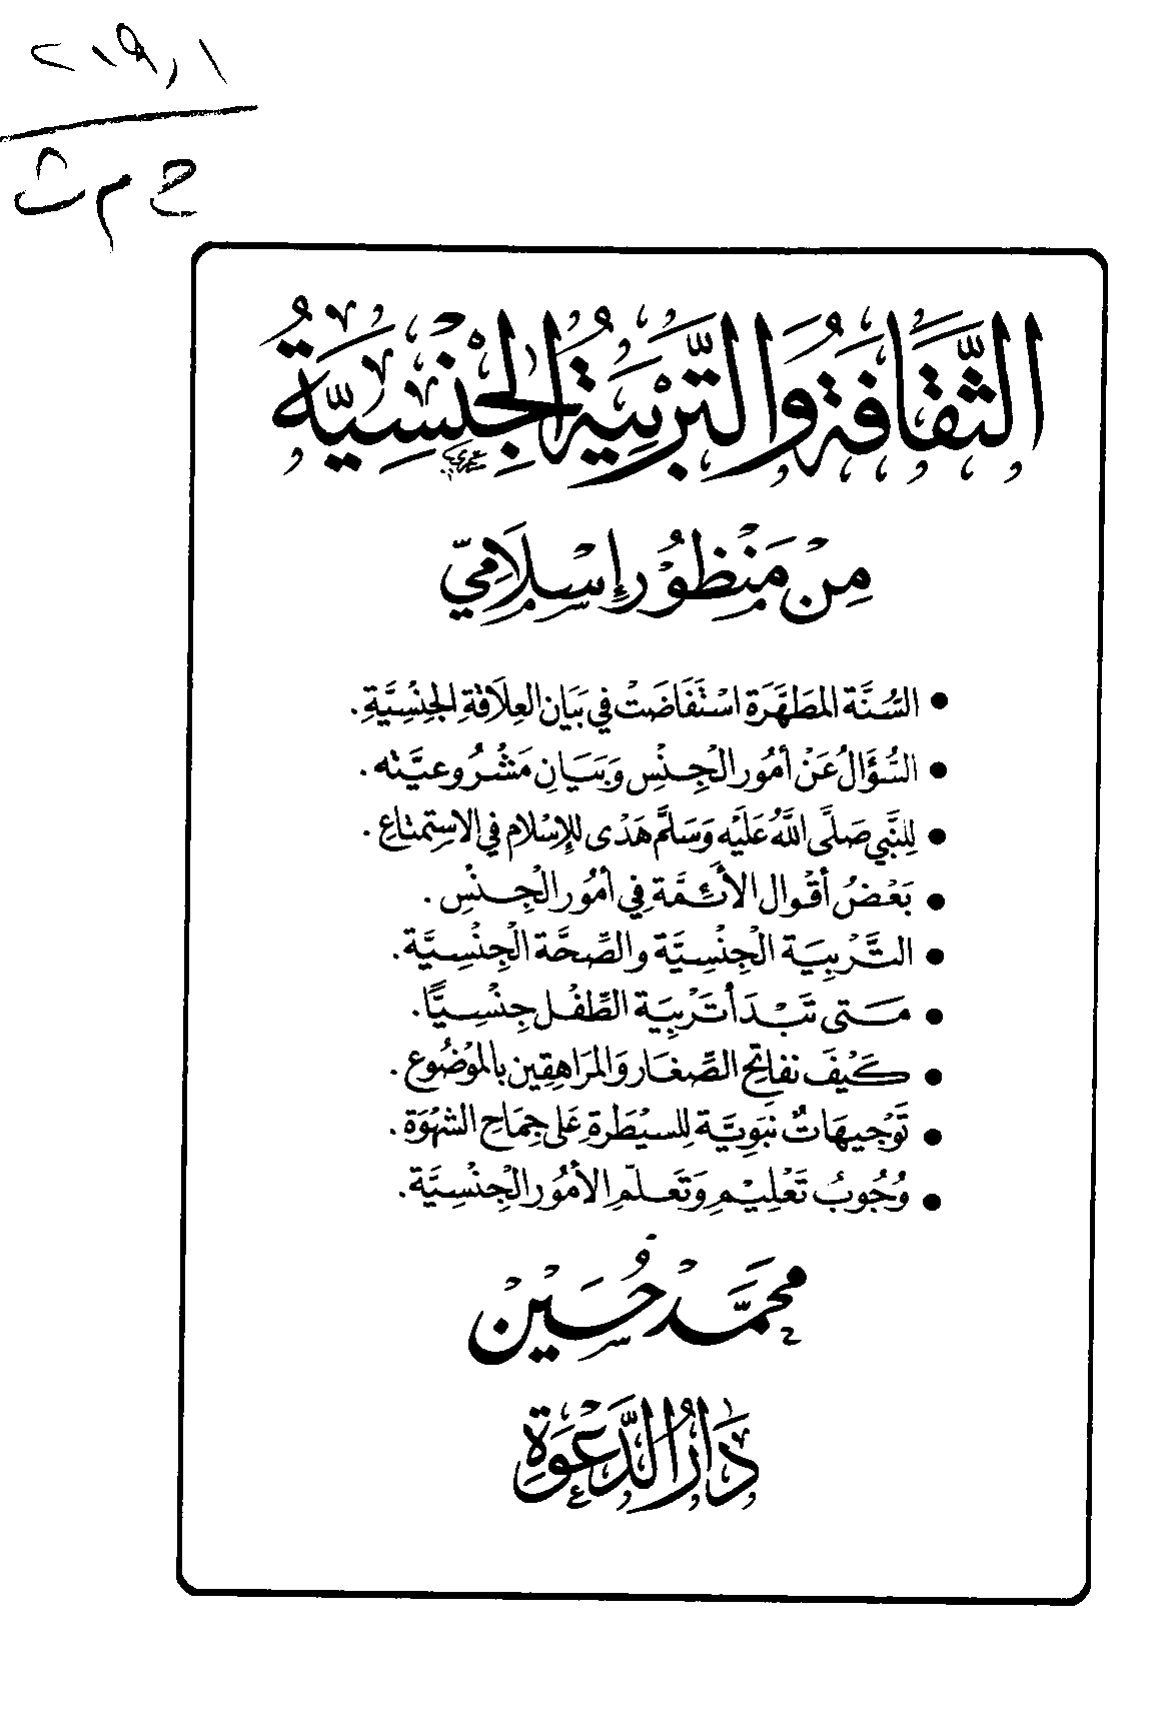 ٢١٩,١
ح م ث
الثَّقَافَةُ وَالتَّرْبِيَةُ الجِنْسِيَّةُ
مِنْ مَنْظُوْرٍ إِسْلَامِيّ
• السُّنَّة المطَهَّرَة اسْتَفَاضَتْ في بَيَان العِلاَقةِ الجِنِسِيَّةِ.
• السُّؤَالُ عَنْ أمُور الْجِنْسِ وَبَيَانِ مَشْرُوعيَّته.
• لِلنَّبِي صَلَّى اللَّهُ عَلَيْه وَسَلَّم هَدْى للإِسْلام في الاسْتِمتاعِ.
• بَعْضُ أقْوال الأَئِمَّة فِي أمُور الْجِنْسِ.
• التَّرْبِيَة الْجِنْسِيَّة والصِّحَّة الْجِنْسِيَّة.
• مَتى تَبْدَأ تَرْبِيَة الطِّفْل جِنْسِيًّا.
• كَيْفَ نفاتِح الصِّغَار وَالمرَاهِقِين بالموْضُوع.
• تَوْجيهَاتٌ نَبَوِيَّة لِلسيْطَرةِ عَلى جِمَاح الشهْوَة.
• وُجُوبُ تَعْلِيْمِ وَتَعلّم الأمُور الْجِنْسِيَّة.
محَمَّد حُسَيْن
دَارُ الدَّعْوَةِ